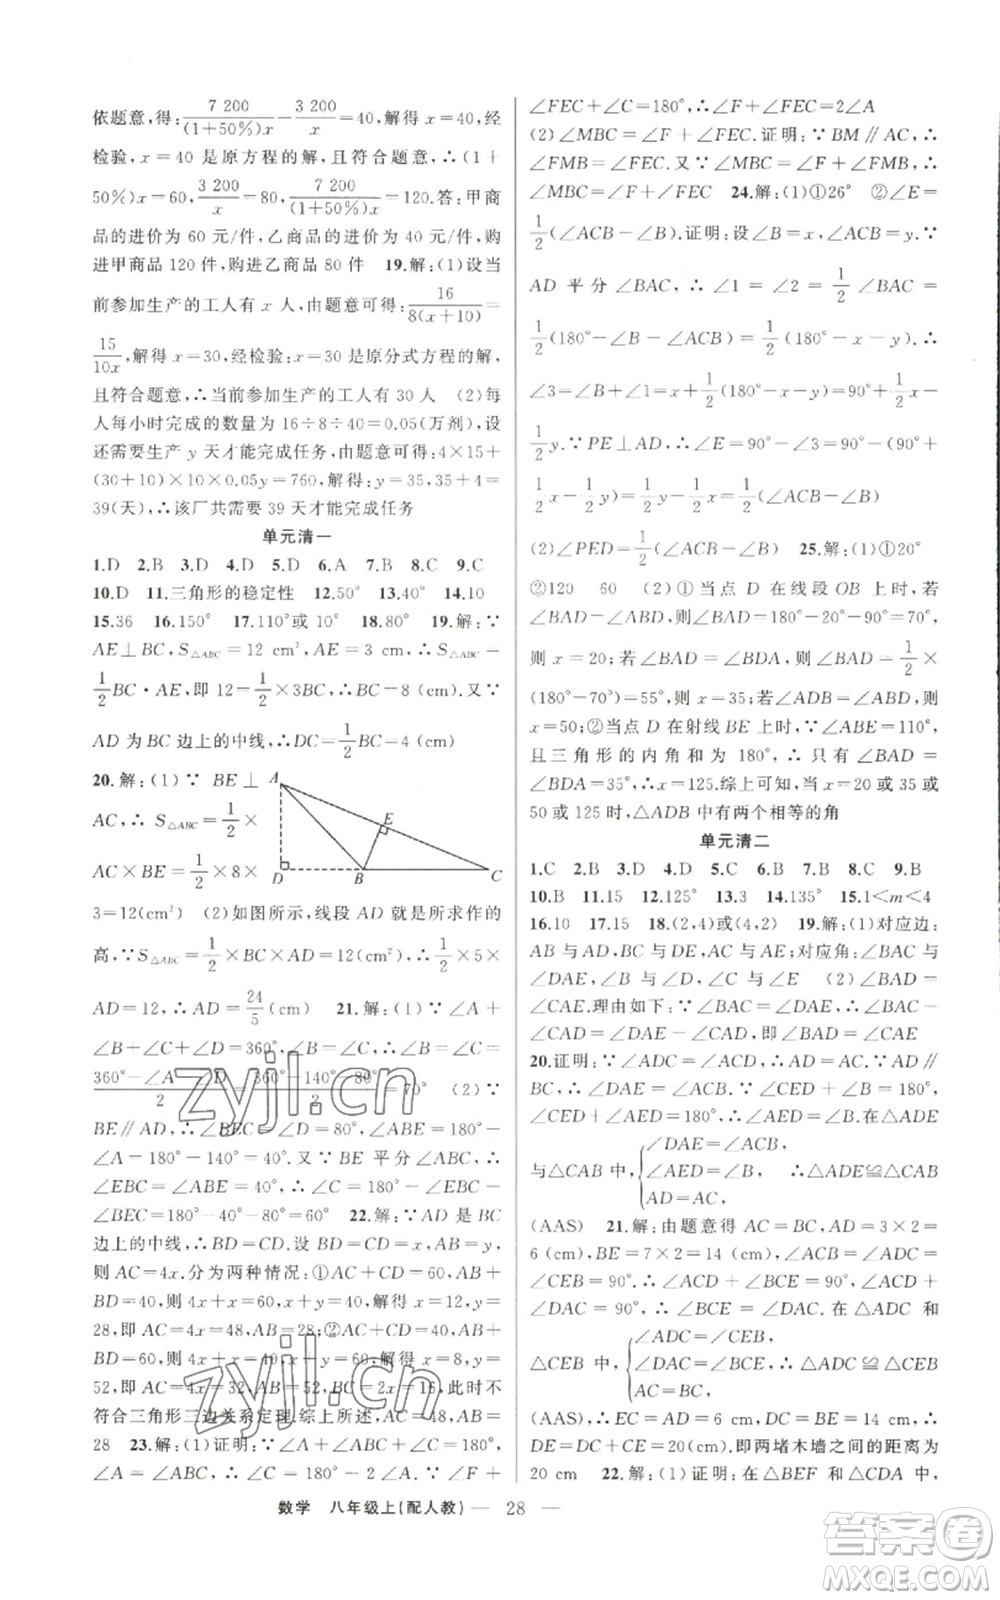 依题意,得:7 200/(1+50%)x − 3 200/x =40,解得 x=40,经
检验, x=40 是原方程的解, 且符合题意, ∴(1+
50%)x=60, 3 200/x =80, 7 200/(1+50%)x =120.答:甲商
品的进价为 60 元/件,乙商品的进价为 40 元/件,购
进甲商品 120 件,购进乙商品 80 件 19.解:(1)设当
前参加生产的工人有 x 人,由题意可得: 16/8(x+10) =
15/10x,解得 x=30,经检验: x=30 是原分式方程的解,
且符合题意,∴当前参加生产的工人有 30 人 (2)每
人每小时完成的数量为 16÷8÷40=0.05(万剂),设
还需要生产 y 天才能完成任务,由题意可得:4×15+
(30+10)×10×0.05y=760,解得:y=35,35+4=
39(天),∴该厂共需要 39 天才能完成任务
单元清一
1.D 2.B 3.D 4.D 5.C 6.A 7.B 8.C 9.C
10.D 11.三角形的稳定性 12.50° 13.40° 14.10
15.36 16.150° 17.110°或 10° 18.80° 19.解:∵
AE⊥BC, S△ABC=12 cm², AE=3 cm, ∴S△ABC=
1/2 BC·AE,即 12=1/2×3BC,∴BC=8(cm).又∵
AD 为 BC 边上的中线,∴DC=1/2 BC=4(cm)
20.解:(1)∵ BE⊥
AC, ∴ S△ABC = 1/2 ×
AC×BE = 1/2 ×8×
A E D B C
3=12(cm²) (2)如图所示,线段 AD 就是所求作的
高,∵S△ABC=1/2×BC×AD=12(cm²),∴1/2×5×
AD=12,∴AD=24/5(cm) 21.解:(1)∵∠A+
∠B+∠C+∠D=360°,∠B=∠C,∴∠B=∠C=
(360°−∠A−∠D)/2=(360°−140°−80°)/2=70° (2)∵
BE∥AD,∴∠BEC=∠D=80°,∠ABE=180°−
∠A=180°−140°=40°.又∵BE 平分∠ABC,∴
∠EBC=∠ABE=40°,∴∠C=180°−∠EBC−
∠BEC=180°−40°−80°=60° 22.解:∵AD 是 BC
边上的中线,∴BD=CD.设 BD=CD=x,AB=y,
则 AC=4x.分为两种情况:①AC+CD=60,AB+
BD=40,则 4x+x=60,x+y=40,解得 x=12,y=
28,即 AC=4x=48,AB=28;②AC+CD=40,AB+
BD=60,则 4x+x=40,x+y=60,解得 x=8,y=
52,即 AC=4x=32,AB=52,BC=2x=16,此时不
符合三角形三边关系定理.综上所述,AC=48,AB=
28 23.解:(1)证明:∵∠A+∠ABC+∠C=180°,
∠A=∠ABC,∴∠C=180°−2∠A,∵∠F+
∠FEC+∠C=180°,∴∠F+∠FEC=2∠A
(2)∠MBC=∠F+∠FEC.证明:∵BM∥AC,∴
∠FMB=∠FEC.又∵∠MBC=∠F+∠FMB,∴
∠MBC=∠F+∠FEC 24.解:(1)①26° ②∠E=
1/2(∠ACB−∠B).证明:设∠B=x,∠ACB=y.∵
AD 平分∠BAC,∴∠1=∠2=1/2∠BAC=
1/2(180°−∠B−∠ACB)=1/2(180°−x−y).∴
∠3=∠B+∠1=x+1/2(180°−x−y)=90°+1/2x−
1/2y.∵PE⊥AD,∴∠E=90°−∠3=90°−(90°+
1/2x−1/2y)=1/2(y−x)=1/2(∠ACB−∠B)
(2)∠PED=1/2(∠ACB−∠B) 25.解:(1)①20°
②120 60 (2)①当点 D 在线段 OB 上时,若
∠BAD=∠ABD,则 x=20;若∠BAD=∠BDA,
则 x=20;若∠BAD=∠BDA,则∠BAD=1/2×
(180°−70°)=55°,则 x=35;若∠ADB=∠ABD,则
x=50;②当点 D 在射线 BE 上时,∵∠ABE=110°,
且三角形的内角和为 180°,∴只有∠BAD=
∠BDA=35°,∴x=125.综上可知,当 x=20 或 35 或
50 或 125 时,△ADB 中有两个相等的角
单元清二
1.C 2.B 3.B 4.D 5.C 6.B 7.B 8.C 9.B
10.B 11.15 12.125° 13.3 14.135° 15.1<m<4
16.10 17.15 18.(2,4)或(4,2) 19.解:(1)对应边:
AB 与 AD,BC 与 DE,AC 与 AE;对应角:∠BAC 与
∠DAE,∠B 与∠D,∠C 与∠E (2)∠BAD=
∠CAE.理由如下:∵∠BAC=∠DAE,∴∠BAC−
∠CAD=∠DAE−∠CAD,即∠BAD=∠CAE
20.证明:∵∠ADC=∠ACD,∴AD=AC.∵AD∥
BC,∴∠DAE=∠ACB.∵∠CED+∠B=180°,
∠CED+∠AED=180°,∴∠AED=∠B.在△ADE
与△CAB 中,{∠DAE=∠ACB, ∠AED=∠B, AD=AC, ∴△ADE≌△CAB
(AAS) 21.解:由题意得 AC=BC,AD=3×2=
6(cm),BE=7×2=14(cm),∠ADC=∠CEB=
∠ACB=90°,∴∠ACD+∠BCE=90°,∠ACD+
∠DAC=90°,∴∠BCE=∠DAC.在△ADC 和
△CEB 中,{∠ADC=∠CEB, ∠DAC=∠BCE, AC=CB, ∴△ADC≌△CEB
(AAS),∴EC=AD=6 cm,DC=BE=14 cm,∴
DE=DC+CE=20(cm),即两堵木墙之间的距离为
20 cm 22.解:(1)证明:在△BEF 和△CDA 中,
数学 八年级上(配人教) — 28 —
zyjl.cn
zyjl.cn
答案圈
MXQE.COM